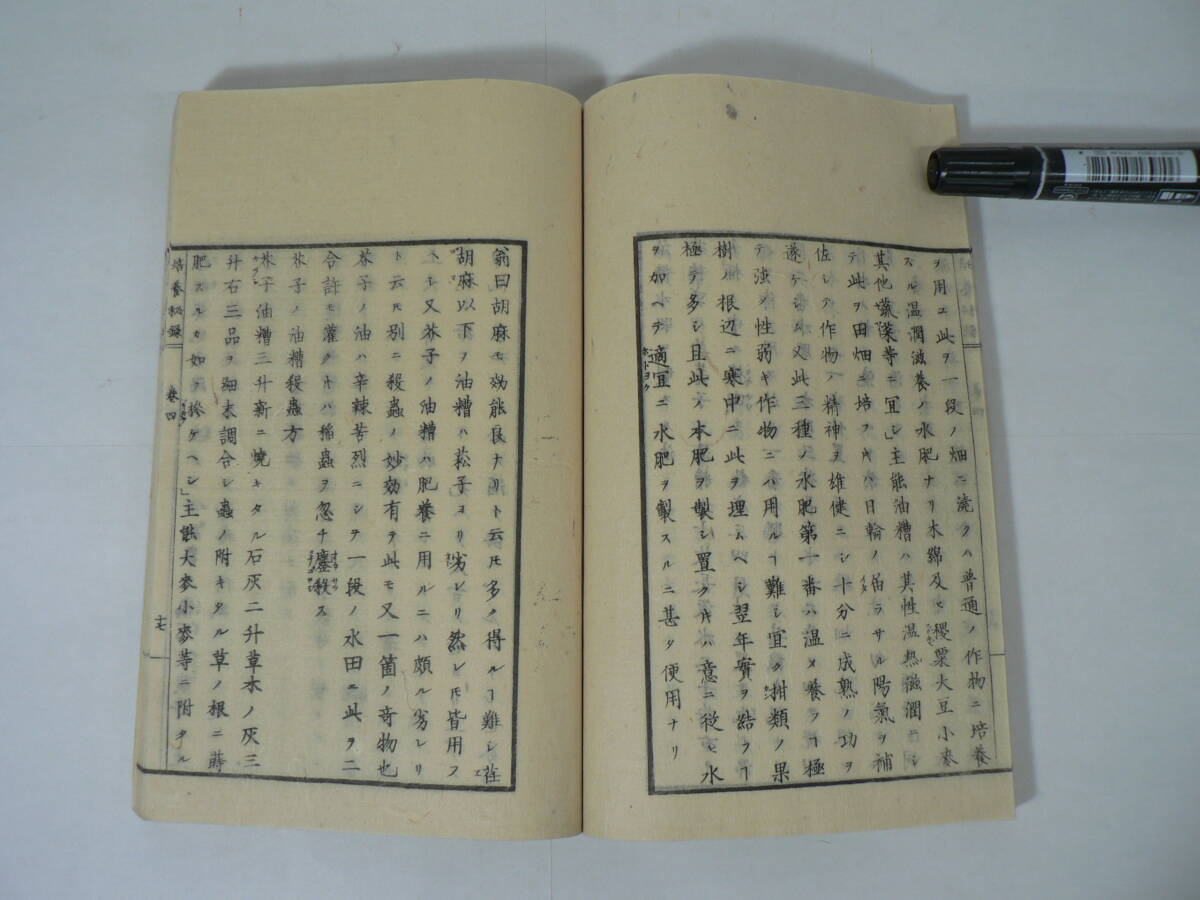 ヲ用ユ此ヲ一段ノ畑ニ澆クハ普通ノ作物ニ培養
スル温潤滋養ノ水肥ナリ木綿及ヒ稷粟大豆小麥
其他蔬菜等ニ宜シ」主能油糟ハ其性温熱滋潤ニシ
テ此ヲ田畑ニ培フキハ日輪ノ届ラサル陽氣ヲ補
佐シテ作物ノ精神ヲ雄健ニシ十分ニ成熟ノ功ヲ
遂ケシム又此三種ノ水肥第一番ハ温メ養フヿ極
テ強シ性弱キ作物ニハ用ルヿ難シ宜ク柑類ノ果
樹ノ根辺ニ寒中ニ此ヲ埋ムヘシ翌年實ヲ結フヿ
極テ多シ且此ノ本肥ヲ製シ置クキハ意ニ従ヒ水
ヲ加ヘテ適宜ニ水肥ヲ製スルニ甚タ便用ナリ
ホトヨク
翁曰胡麻モ効能良ナリト云㪽多ク得ルヿ難シ荏
胡麻以下ヲ油糟ハ菘子ヨリ劣レリ然レ㪽皆用フ
ヘシ又芥子ノ油糟ハ肥養ニ用ルニハ頗ル劣レリ
ト云㪽別ニ殺蟲ノ妙効有テ此モ又一箇ノ奇物也
芥子ノ油ハ辛辣苦烈ニシテ一段ノ水田ニ此ヲ二
合許モ灌クキハ稲蟲ヲ忽チ鏖殺ス
芥子ノ油糟殺蟲方
芥子油糟三升新ニ焼キタル石灰二升草木ノ灰三
斗右三品ヲ細末調合シ蟲ノ附キタル草ノ根ニ蒔
肥スルカ如ク掺ケヘシ」主能大麥小麥等ニ附タル
培養秘録 巻四 十七